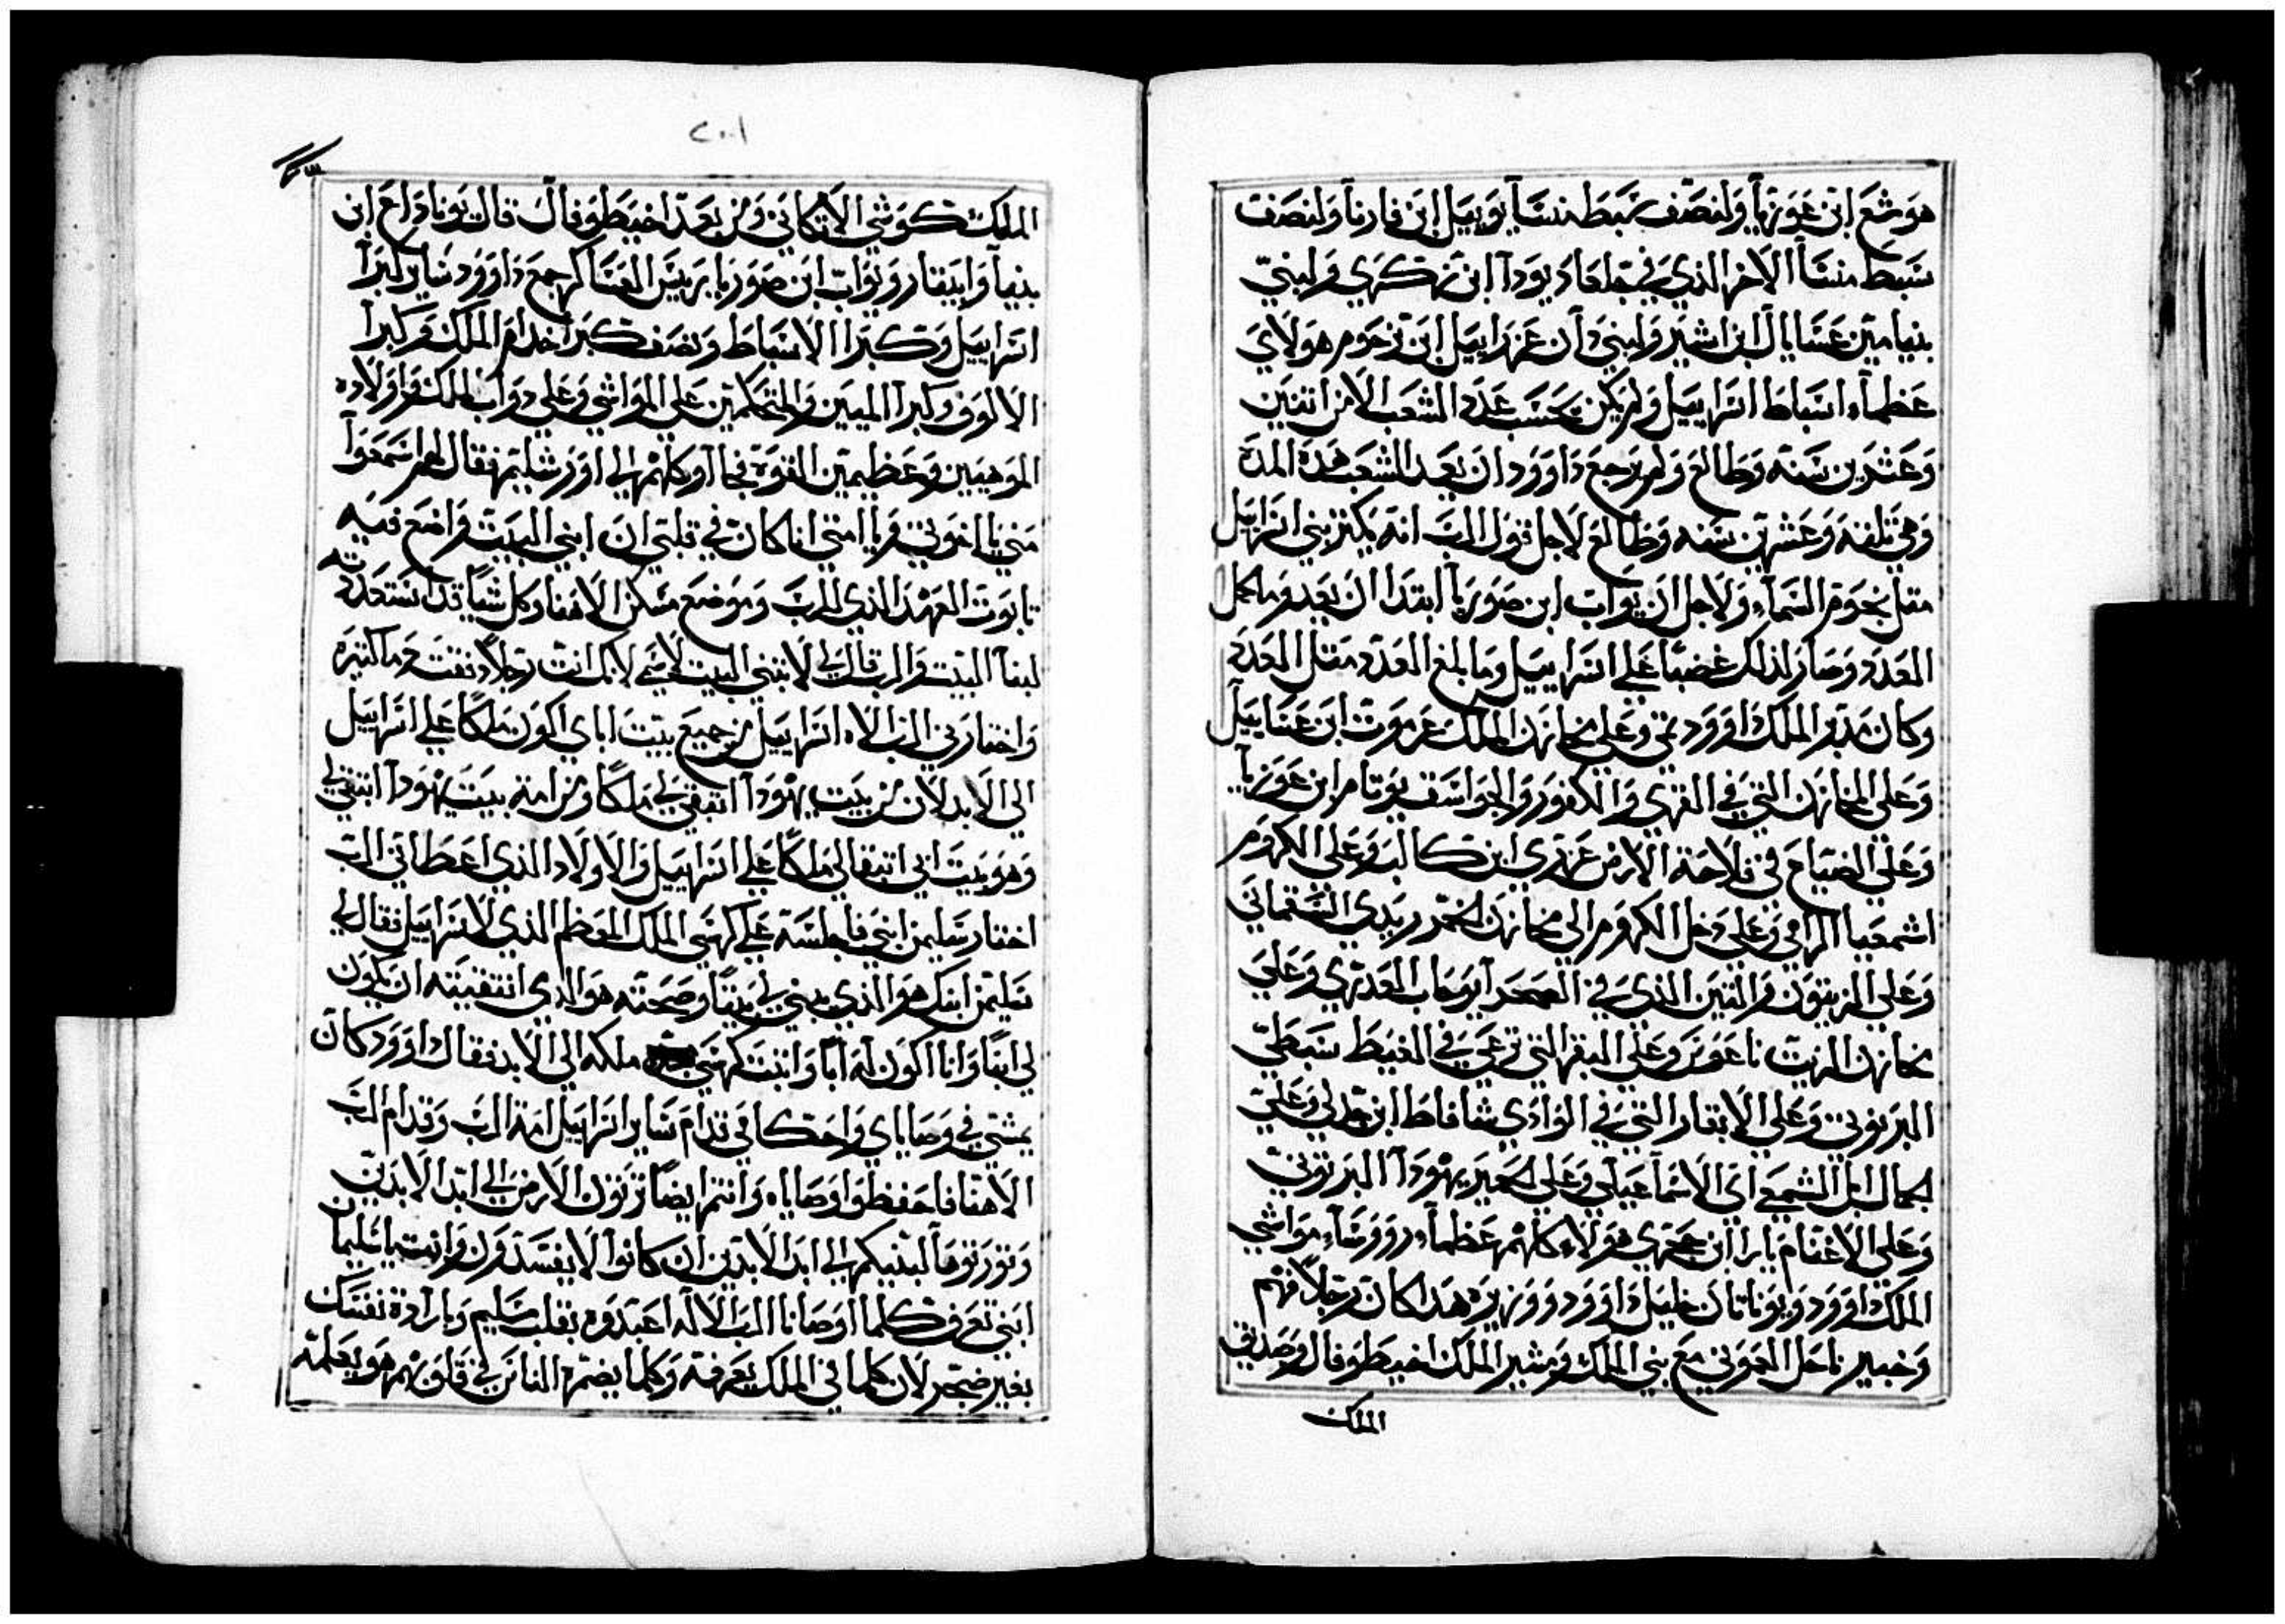 هوشع ابن عوزيا ولنصف سبط منسا يوييل ابن فاديا ولنصف
سبط منسا الاخر الذي في جلعاد يودا ابن زكري ولبني
بنيامين عسايال ابن اشير ولبني دان عزراييل ابن يرحوم هولاي
عظماء اسباط اسراييل ولم يكن يحسب عدد الشعب الا من اثنين
وعشرين سنه وطالع ولم يرجع داوود ان يعد الشعب هذه المدة
وهي ثلثة وعشرين سنه وطالع لاجل قول الرب انه يكثر بني اسراييل
مثل نجوم السماء ولاجل ان يواب ابن صوريا ابتدا ان يعد وما كمل
العدد وصار لذلك غضبا على اسراييل وما بلغ العدد مثل العدد
وكان مدبر الملك داوود وعلى مخازن الملك عزموت ابن عتاييل
وعلى المخازن التي في القري والكفور والجواسق يوتام ابن عوزيا
وعلى الضياع في فلاحة الارض عزري ابن كالب وعلى الكروم
اشمعيا الرامي وعلى دخل الكروم الي مخازن الخمر زبدي الشقماني
وعلى الزيتون والتين الذي في الصحرا بوحاب العدري وعلي
مخازن الزيت ناعوس وعلى البقر التي ترعي في الغيط سبطي
البرنوني وعلى الابقار التي في الوادي شافاط ابن عدلي وعلي
الجمال ابل الشمعي اي الاسماعيلي وعلى الحمير يهودا البرنوني
وعلى الاغنام يارا ابن عجري هولاء كلهم عظماء وروساء مواشي
الملك داوود ويوناتان خليل داوود ووزيره هذا كان رجلا فهم
وخبير ناحل العموني مع بني الملك ومشير الملك اخيطوفال وصديق
الملك
٢٠١
الملك كوشي الاركاني ومن بعد اخيطوفال قال يوناداع ابن
بنيا وابيثار ويواب ابن صوريا رييس العساكر جمع داوود ساير كبرا
اسراييل وكبرا الاسباط ونصف كبرا خدام الملك وكبرا
الالوف وكبرا الميين والمتحكمين على المواشي وعلى دواب الملك واولاده
الموهبين وعظيمين القوة فجاآو كلهم الي اورشليم فقال لهم اسمعوا
مني يا اخوتي ويا امتي انا كان في قلبي ان ابني البيت واضع فيه
تابوت العهد الذي للرب وموضع مسكن الاهنا وكل شيا قد استعددته
لبنا البيت والرب قال لي لا تبني البيت لاسمي لانك انت رجلا دفقت دما كثيره
واختارني الرب الاه اسراييل من جميع بيت اباي اكون ملكا على اسراييل
الي الابد لان من بيت يهودا انتقي لي ملكا ومن امة بيت يهودا انتقي لي
وهو بيت ابي ابتقالي ملكا على اسراييل والاولاد الذي اعطاني الرب
اختار سليمن ابني فاجلسه على كرسي الملك المعظم الذي لاسراييل فقال لي
سليمن ابنك هو الذي يبني لي بيتا وصحته هو الذي انتقيته ان يكون
لي ابنا وانا اكون له ابا واثبت كرسي ملكه الي الابد فقال داوود كان
يمشي في وصاياي واحكامي قدام ساير اسراييل امة الرب وقدام الرب
الاهنا فاحفظوا وصاياه وانتم ايضا ترثون الارض الي ابد الابدين
وتورثوها لبنيكم الي ابد الابدين ان كانوا لا يفسدون وانت يا سليمان
ابني تعرف كلما اوصانا الرب الاله اعبدوه بقلب سليم وبارادة نفسك
بغير ضجر لان كلما في الملك يعرفه وكلما يضمره الناس في قلوبهم هو يعلمه